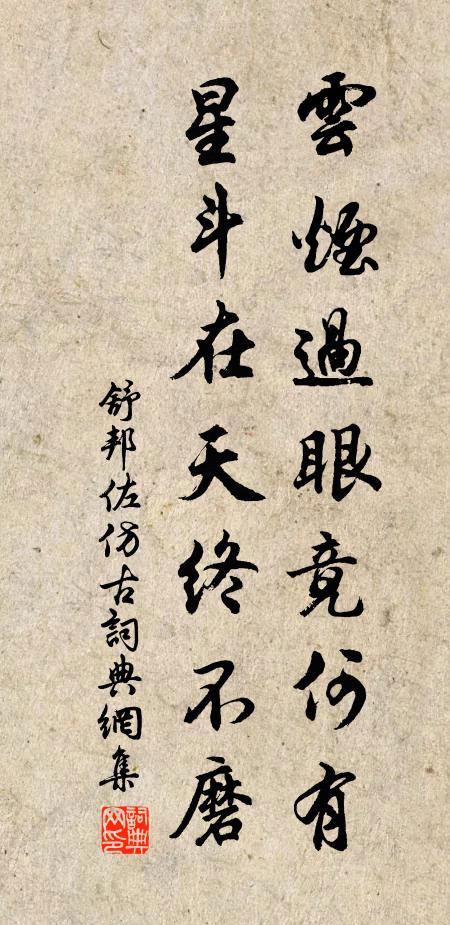 雲煙過眼竟何有
星斗在天終不磨
舒邦佐仿古詞典網集
詞典網印